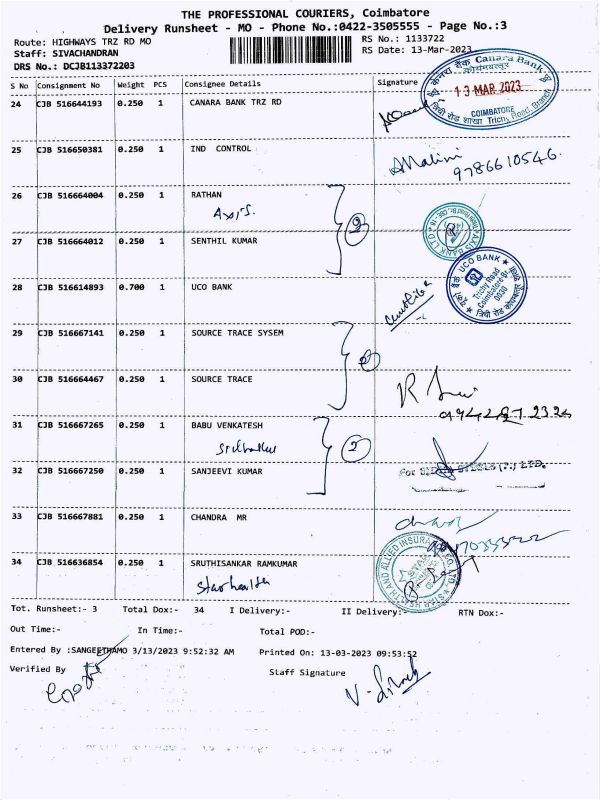 THE PROFESSIONAL COURIERS, Coimbatore
Delivery Runsheet - MO - Phone No.:0422-3505555 - Page No.:3
Route: HIGHWAYS TRZ RD MO RS No.: 1133722
Staff: SIVACHANDRAN RS Date: 13-Mar-2023
DRS No.: DCJB113372203
S No Consignment No Weight PCS Consignee Details Signature
Canara Bank
13 MAR 2023
COIMBATORE
24 CJB 516644193 0.250 1 CANARA BANK TRZ RD
25 CJB 516650381 0.250 1 IND CONTROL
AMalini
9786610546.
26 CJB 516664004 0.250 1 RATHAN
Axis. 2
27 CJB 516664012 0.250 1 SENTHIL KUMAR
AXIS BANK LTD
28 CJB 516614893 0.700 1 UCO BANK
UCO BANK
Trichy Road
Coimbatore Br.
0030
29 CJB 516667141 0.250 1 SOURCE TRACE SYSEM
2
30 CJB 516664467 0.250 1 SOURCE TRACE
31 CJB 516667265 0.250 1 BABU VENKATESH
2
32 CJB 516667250 0.250 1 SANJEEVI KUMAR
For
33 CJB 516667881 0.250 1 CHANDRA MR
34 CJB 516636854 0.250 1 SRUTHISANKAR RAMKUMAR
Starhealth
STAR HEALTH AND ALLIED INSURANCE CO. LTD.
Tot. Runsheet:- 3 Total Dox:- 34 I Delivery:- II Delivery:- RTN Dox:-
Out Time:- In Time:- Total POD:-
Entered By :SANGEETHAMO 3/13/2023 9:52:32 AM Printed On: 13-03-2023 09:53:52
Verified By Staff Signature